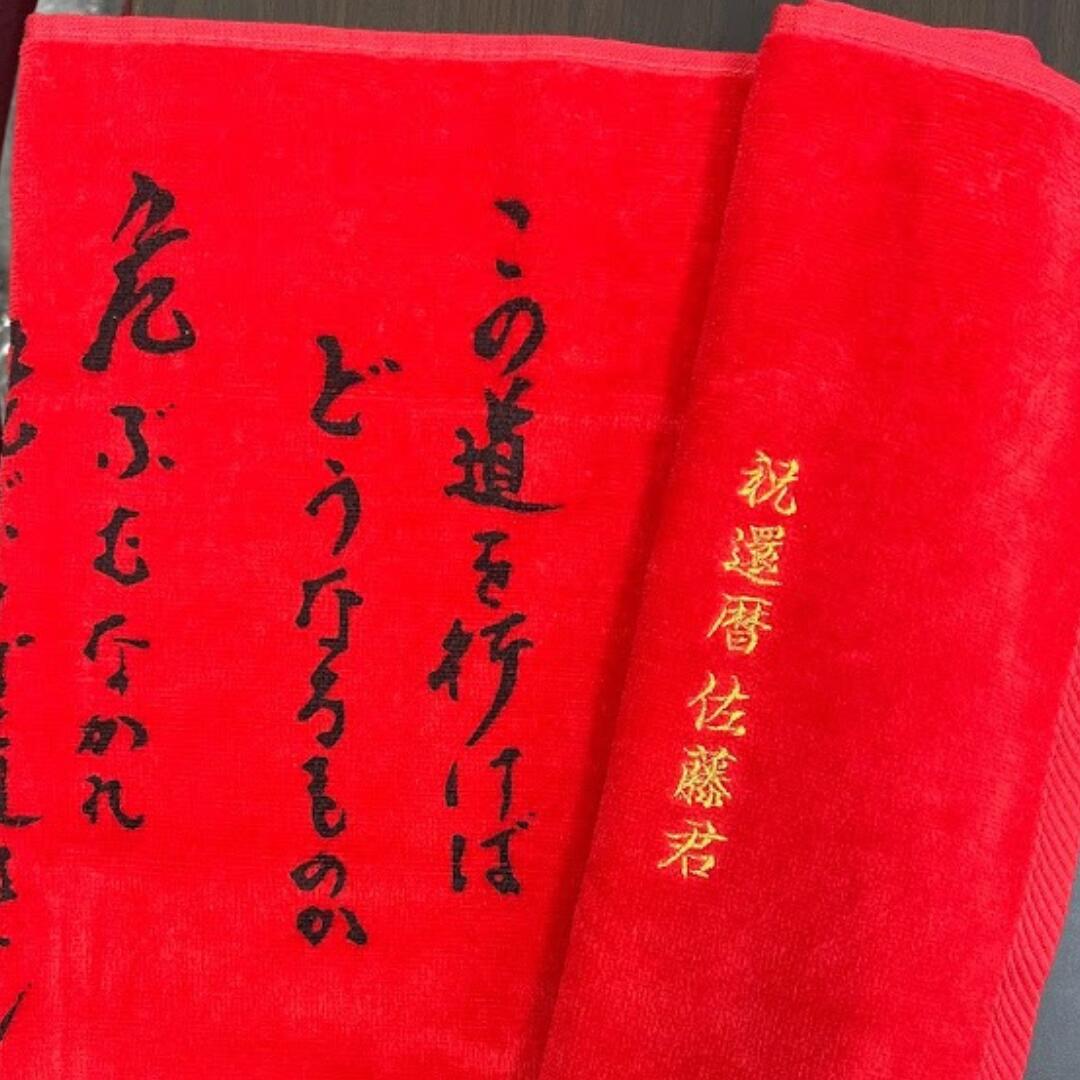 祝還暦佐藤君
この道を行けば
どうなるものか
危ぶむなかれ